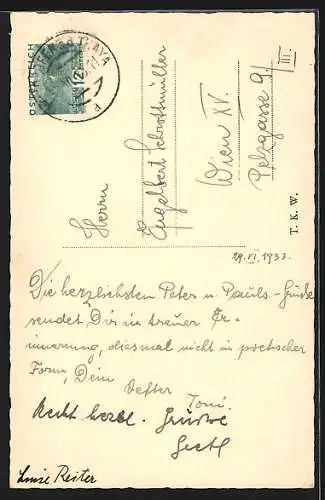 ÖSTERREICH
12
Herrn
Engelbert Schrottmüller
Wien XV.
Pelzgasse 9/III.
T. K. W.
29. VI. 1933.
Die herzlichsten Peter u. Pauls-Grüße
sendet Dir in treuer Er-
innerung, diesmal nicht in poetischer
Form, Dein
Toni.
Recht herzl. Grüße
Luise Reiter